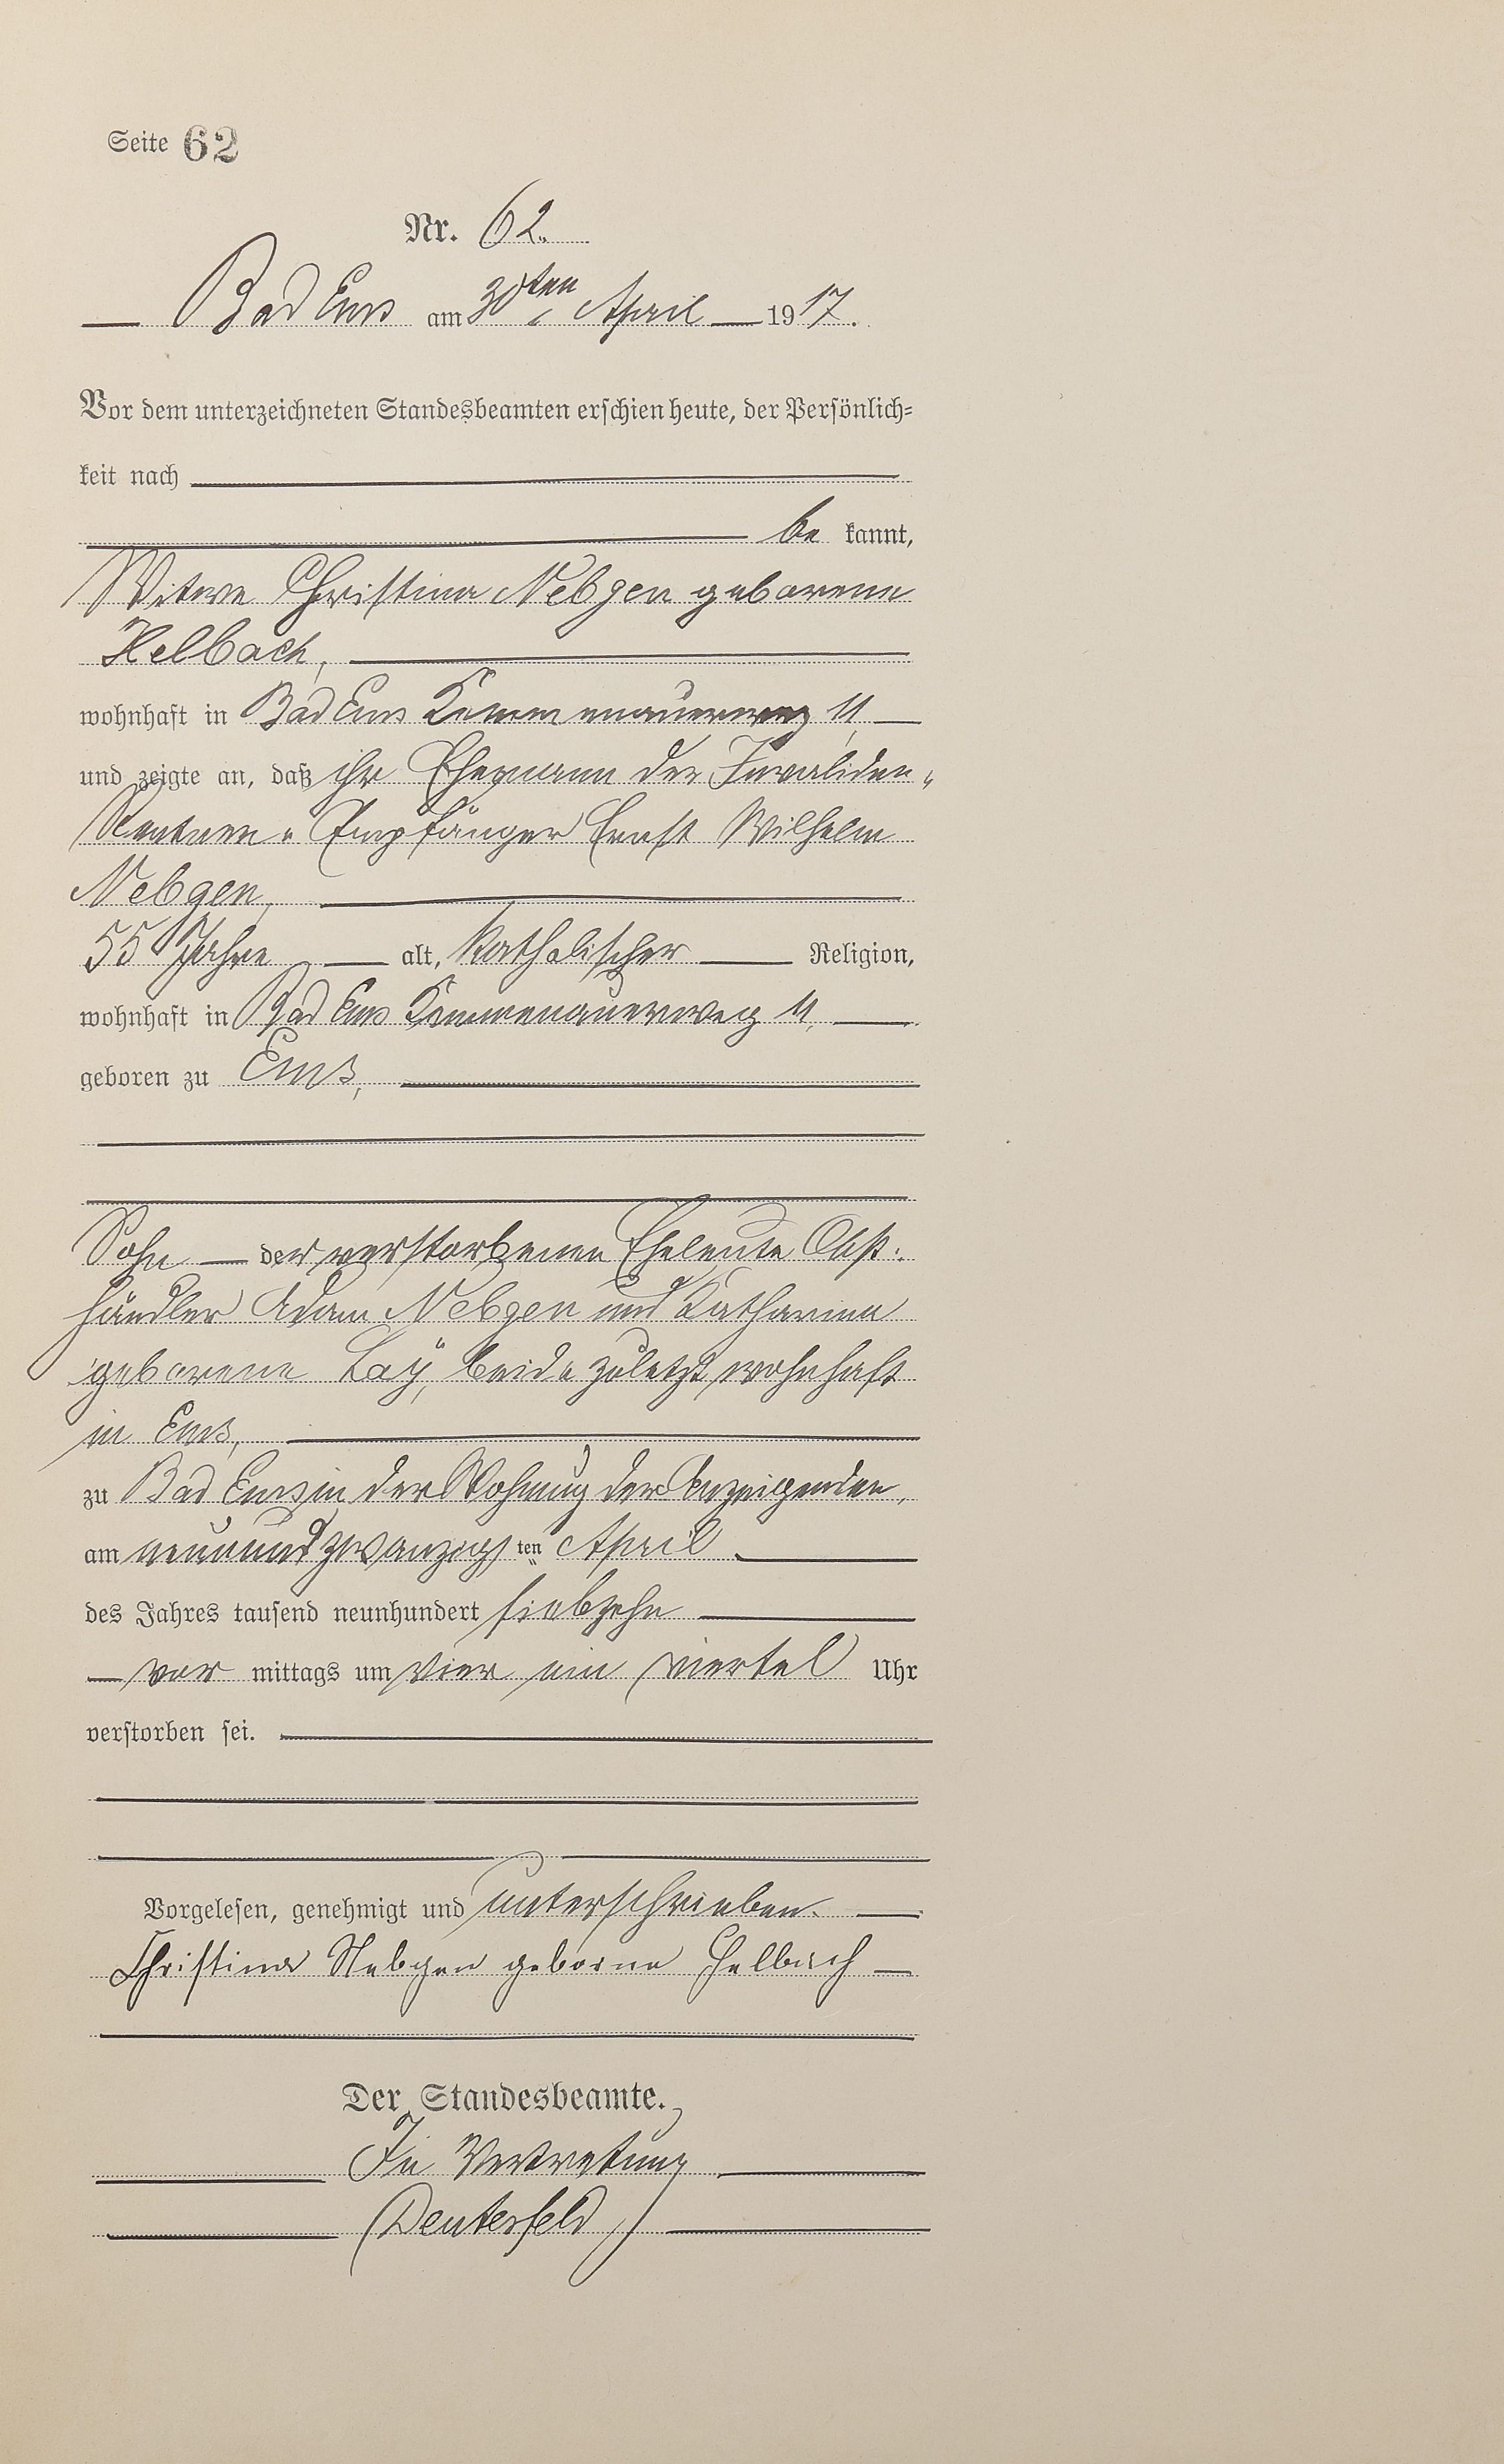 Seite 62
Nr. 62.
Bad Ems am 30ten April 1917.
Vor dem unterzeichneten Standesbeamten erschien heute, der Persönlich-
keit nach
be kannt,
Witwe Christina Nebgen geborene
Helbach,
wohnhaft in Bad Ems Kemmenauerweg 11,
und zeigte an, daß ihr Ehemann der Invaliden-
Renten-Empfänger Ernst Wilhelm
Nebgen,
55 Jahre alt, katholischer Religion,
wohnhaft in Bad Ems Kemmenauerweg 11,
geboren zu Ems,
Sohn der verstorbenen Eheleute Obst-
händler Adam Nebgen und Katharina
geborene Laÿ, beide zuletzt wohnhaft
in Ems,
zu Bad Ems, in der Wohnung der Anzeigenden,
am neunundzwanzigsten April
des Jahres tausend neunhundert siebzehn
vor mittags um vier ein viertel Uhr
verstorben sei.
Vorgelesen, genehmigt und unterschrieben.
Christina Nebgen geborne Helbach
Der Standesbeamte.
In Vertretung
(Deuterfeld)